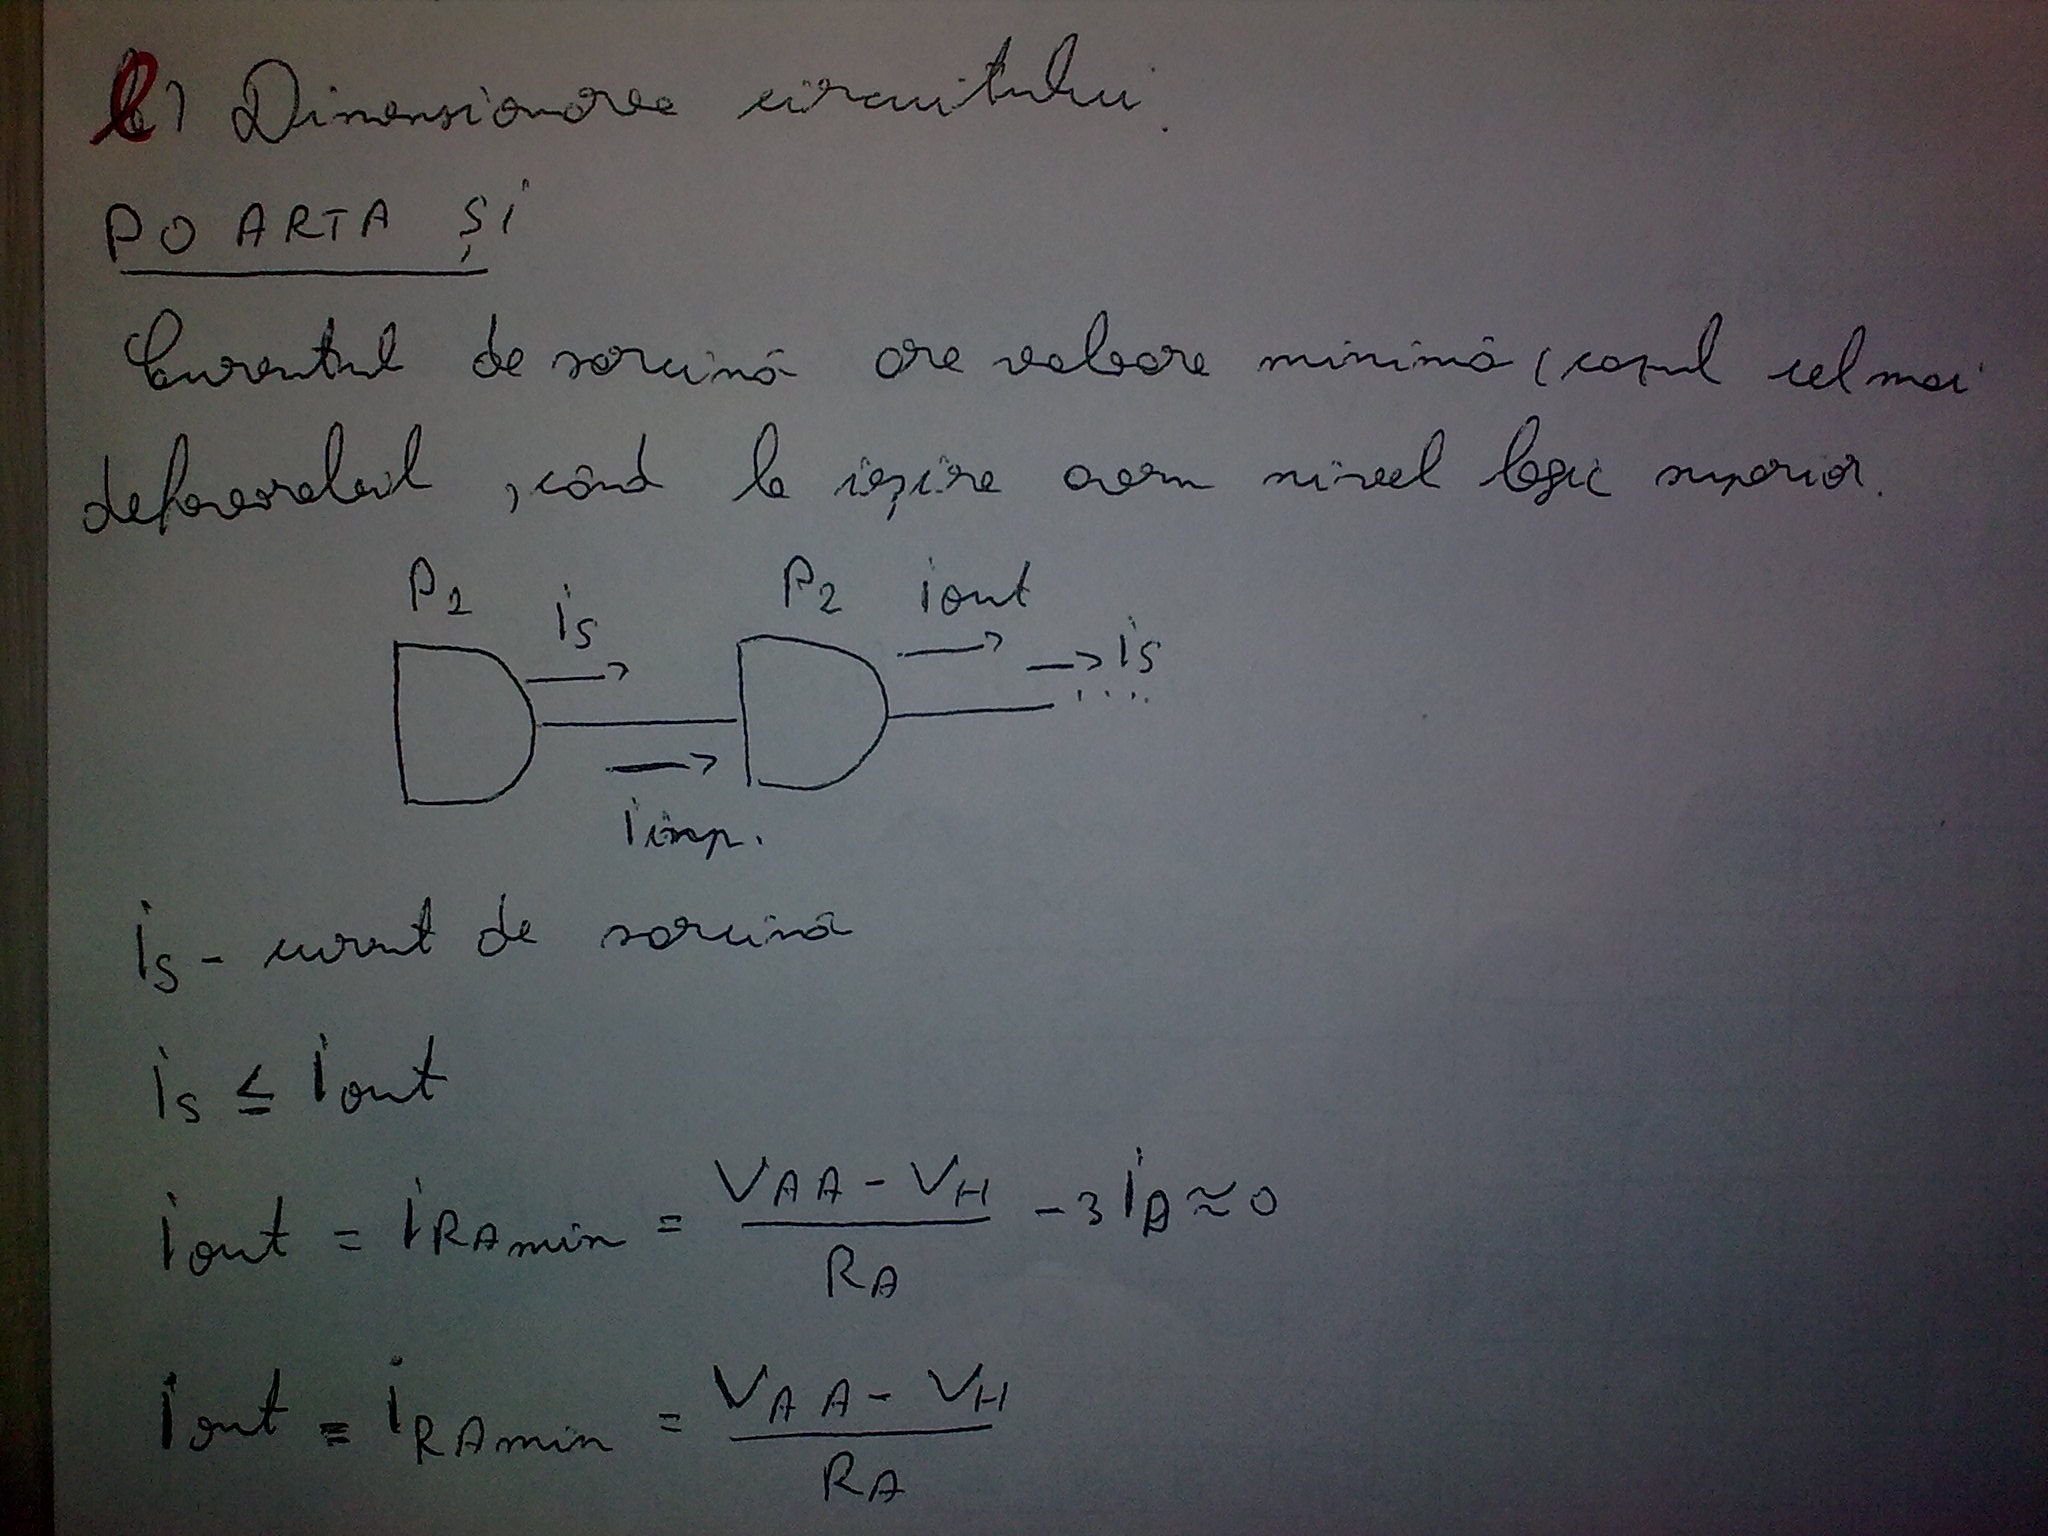 b) Dimensionarea circuitului.
POARTA ȘI
Curentul de sarcină are valoare minimă (cazul cel mai
defavorabil, când la ieșire avem nivel logic superior.
P1 is P2 iout
→ is
....
i inp.
is - curent de sarcină
is ≤ iout
iout = iRAmin = (VAA - VH) / RA - 3 iD ≈ 0
iout = iRAmin = (VAA - VH) / RA